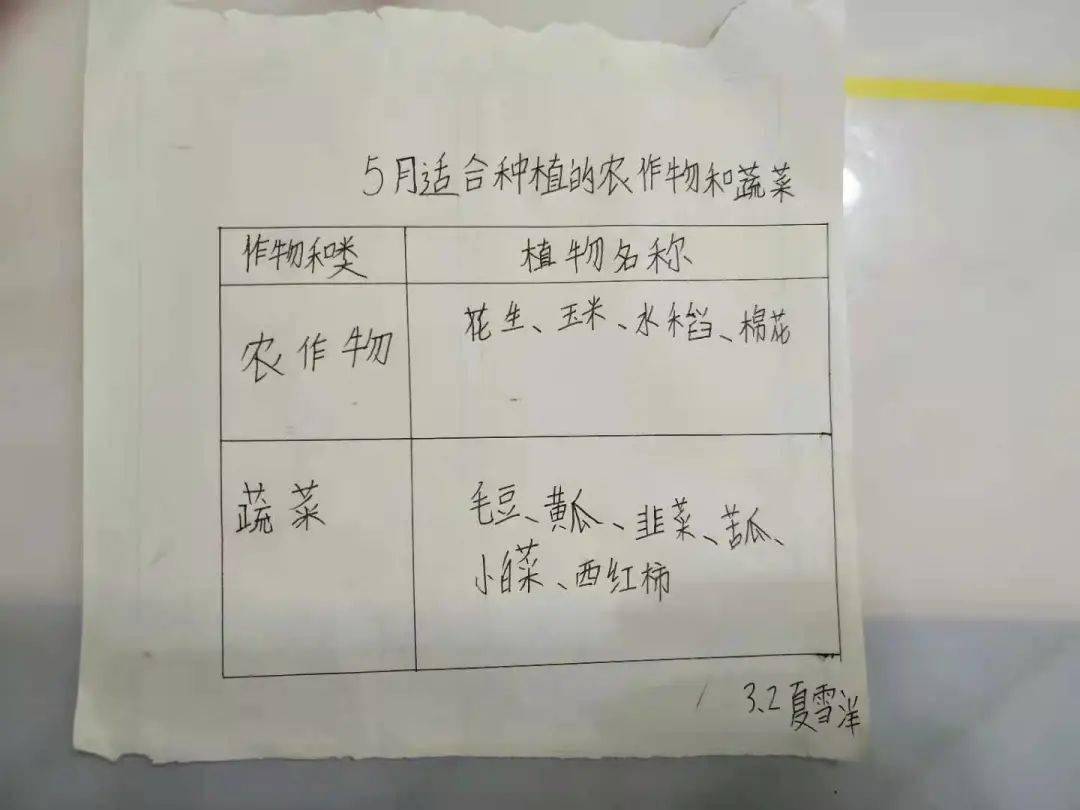 5月适合种植的农作物和蔬菜
作物和类 植物名称
农作物 花生、玉米、水稻、棉花
蔬菜 毛豆、黄瓜、韭菜、苦瓜、
小白菜、西红柿
3.2夏雪洋